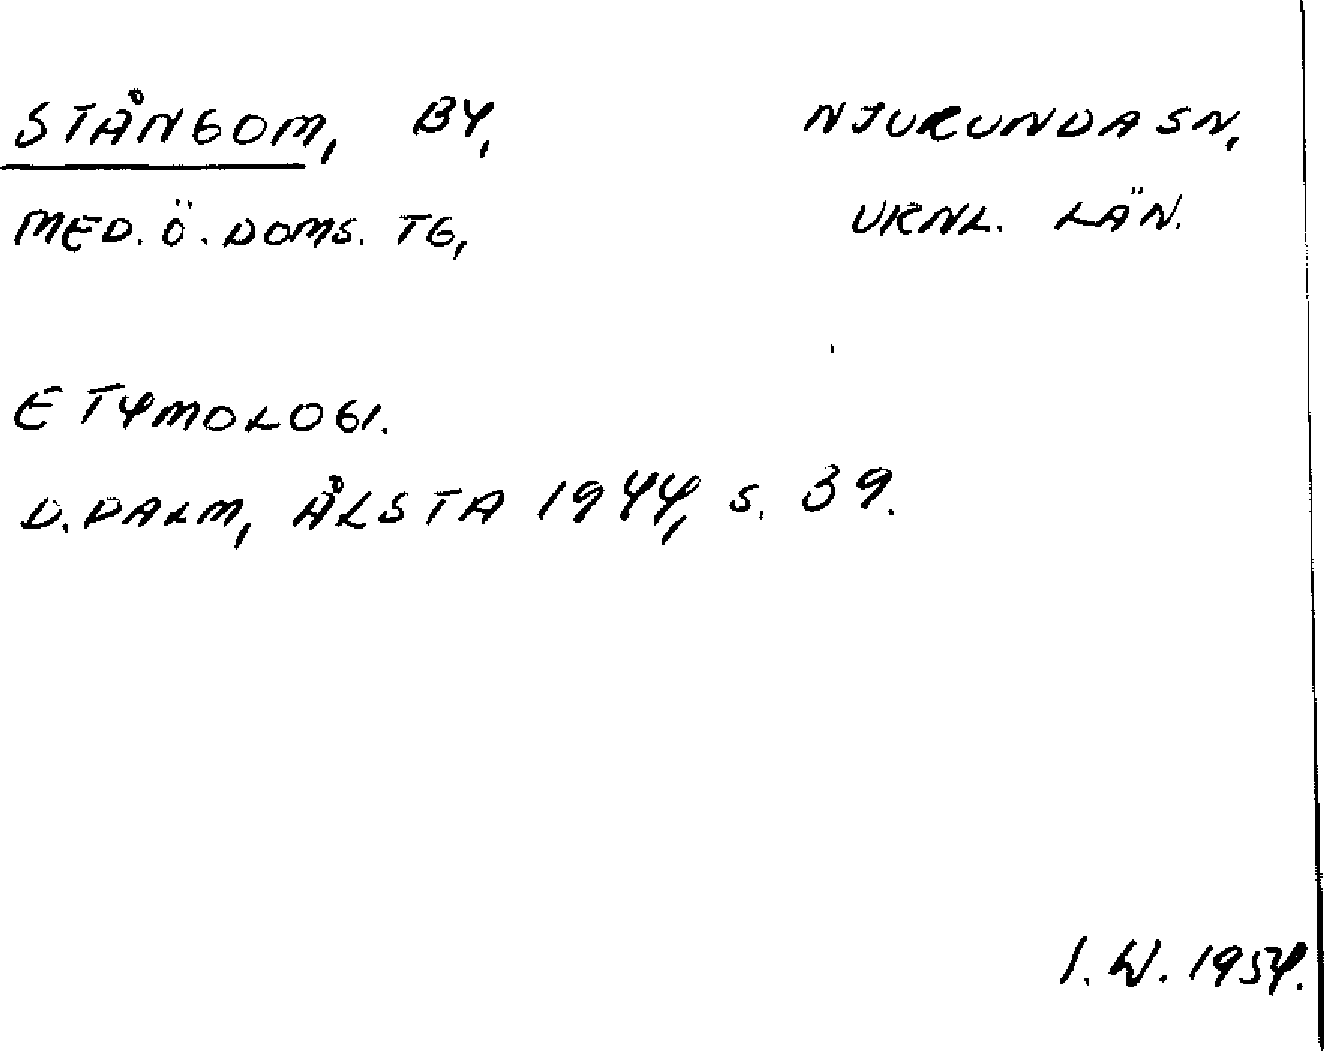 STÅNGOM, BY, NJURUNDA SN,
MED. Ö. DOMS. TG, VRNL. LÄN.
ETYMOLOGI.
D. PALM, ÅLSTA 1944, S. 39.
I. W. 1954.